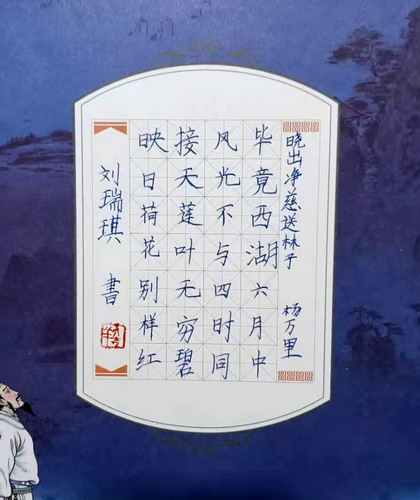 晓出净慈送林子 杨万里
毕竟西湖六月中
风光不与四时同
接天莲叶无穷碧
映日荷花别样红
刘瑞琪 書